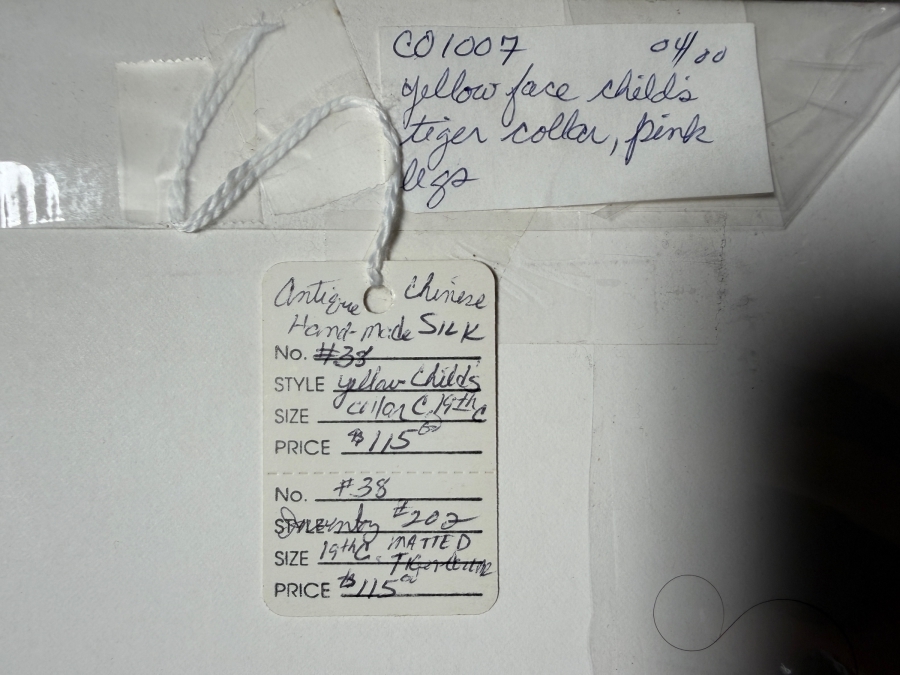 CO1007 04/00
yellow face child's
tiger collar, pink
legs
Antique Chinese
Hand-made SILK
No. #38
STYLE yellow Child's
SIZE collar C. 19th C
PRICE $115.00
No. #38
STYLE Inventory #202
SIZE 19thC. MATTED
Tiger Collar
PRICE $115.00